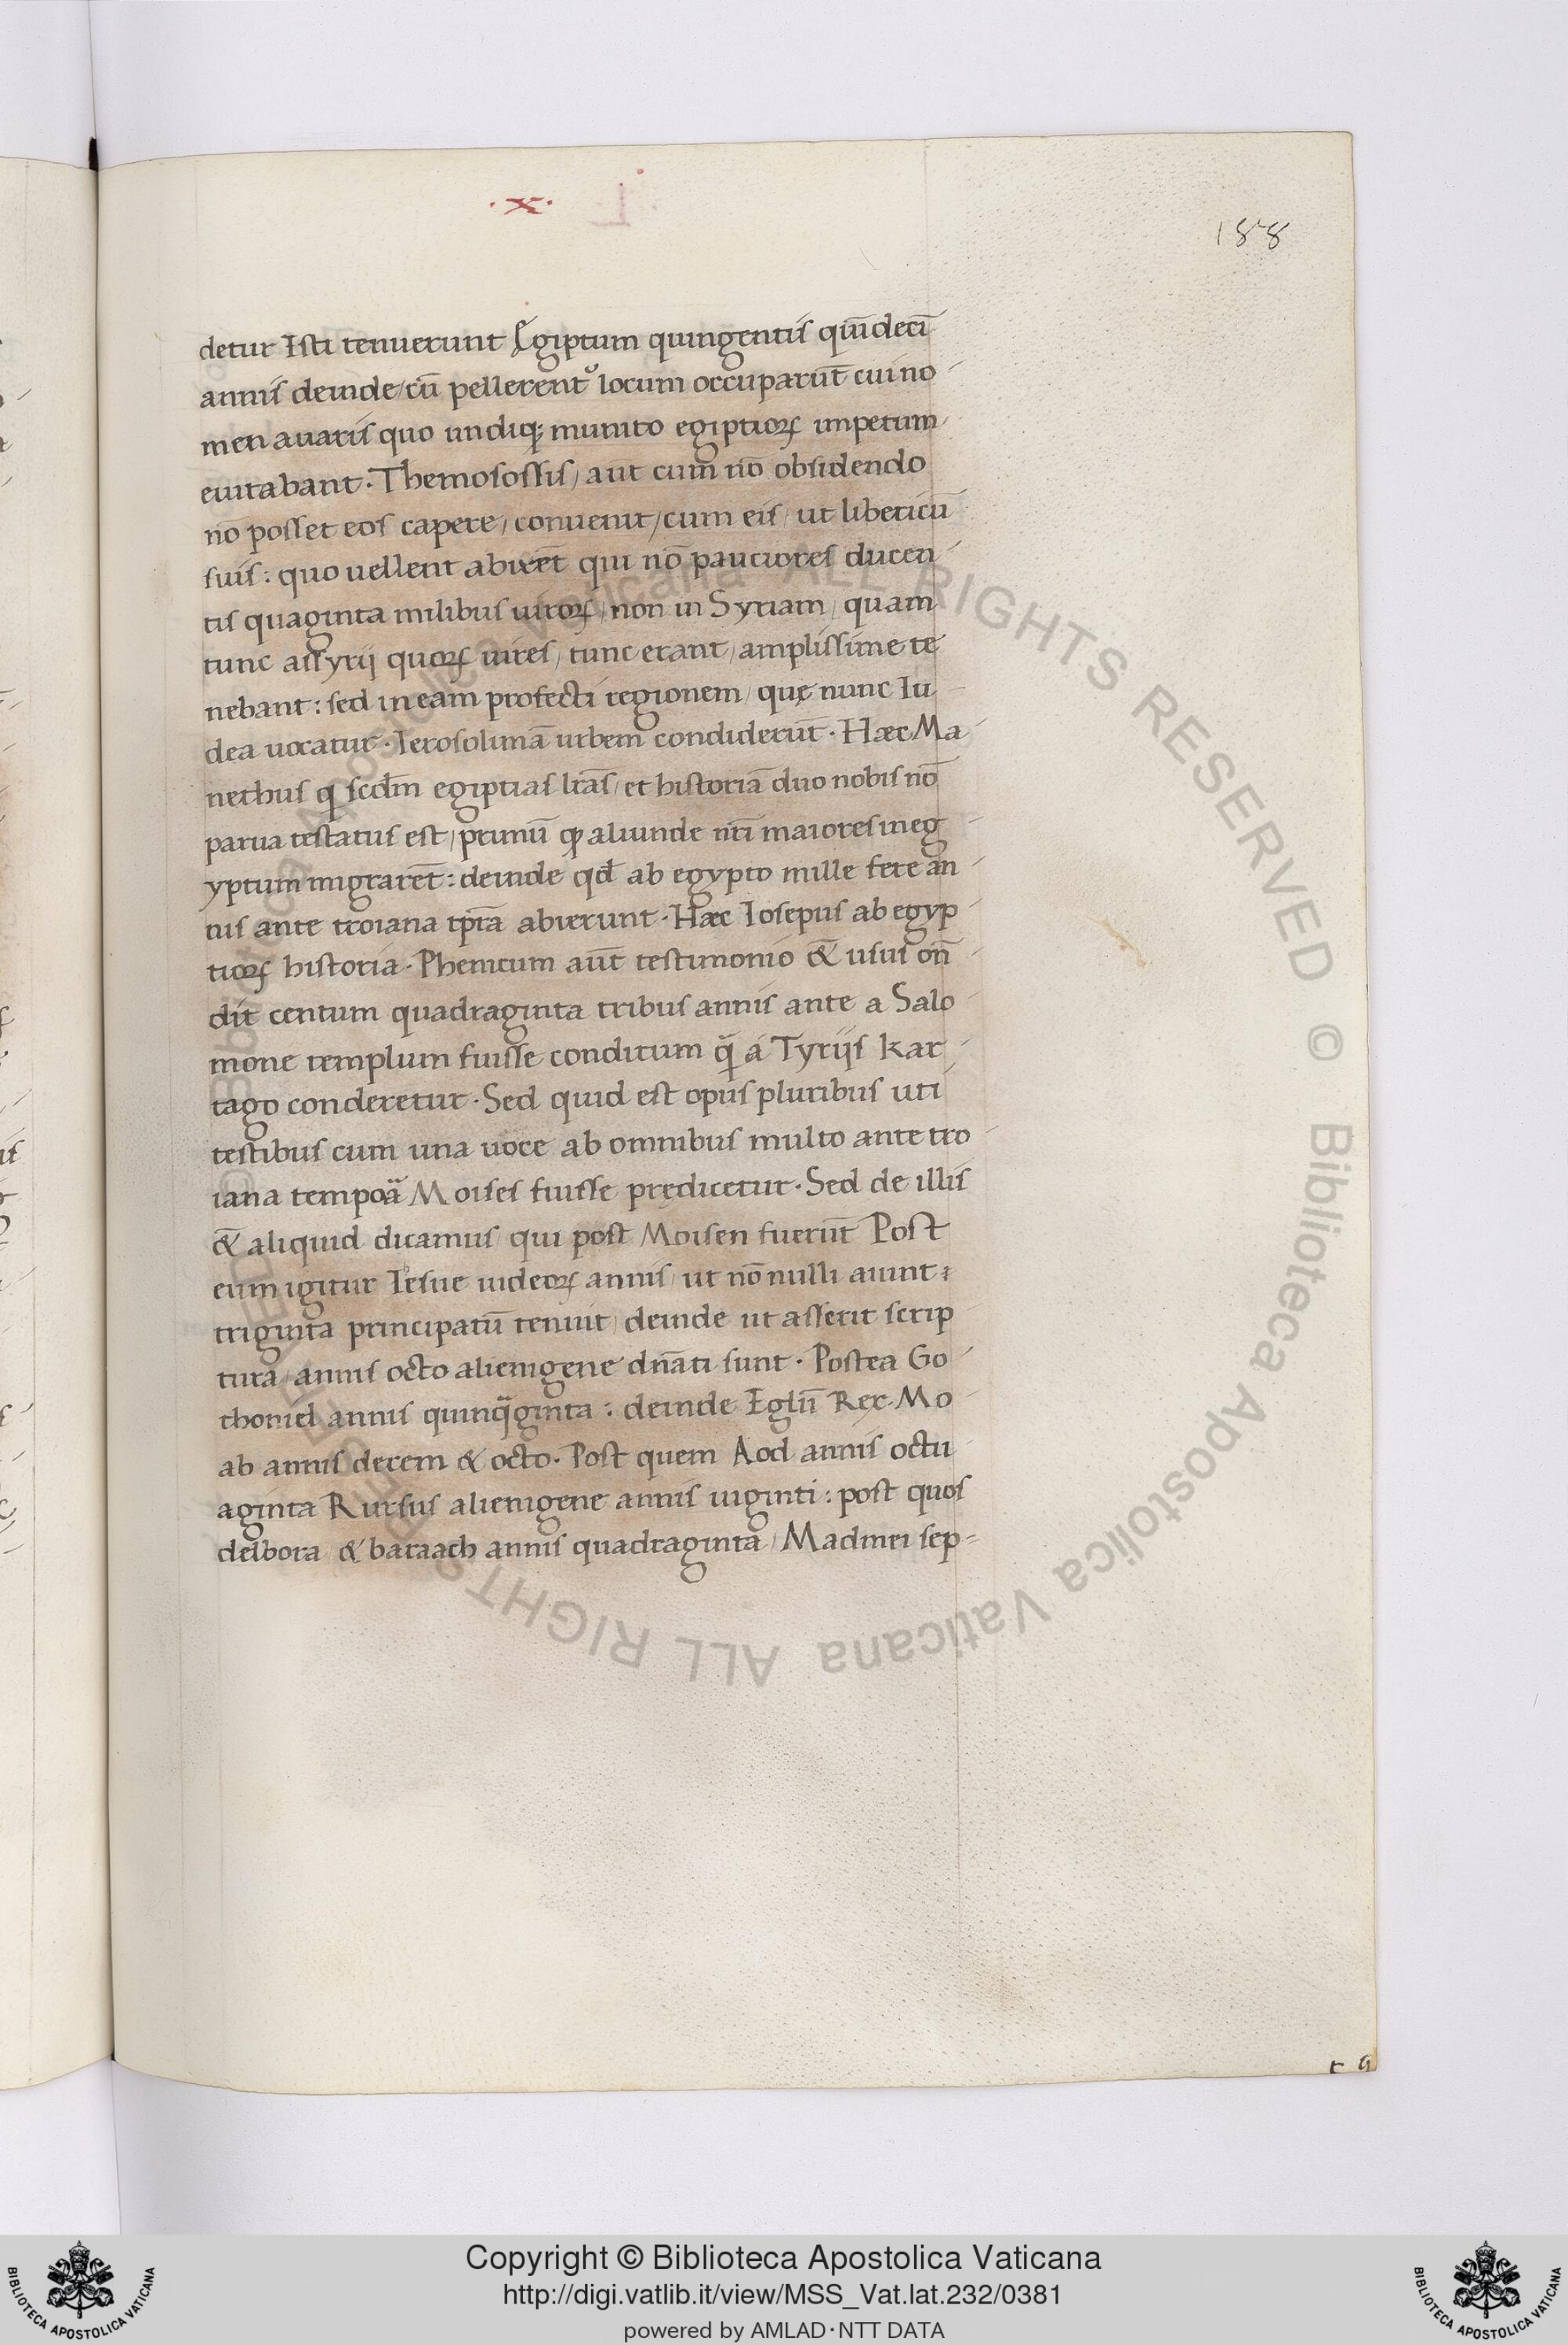 ·x·
188
detur Isti tenuerunt Egiptum quingentis quīdecī
annis deinde/cū pellerent᷒ locum occuparūt cui no
men avaris quo undiqꝫ munito egiptioꝝ impetum
euitabant· Themosossis/ aūt cum nō obsidendo
nō posset eos capere/ conuenit/cum eis/ ut liberi cū
suis: quo uellent abirēt qui nō pauciores ducen
tis quaginta milibus uiroꝝ/ non in Syriam/ quam
tunc assyrij quoꝝ uires/ tunc erant/ amplissime te
nebant: sed in eam profecti regionem/ quę nunc Iu
dea uocatur· Ierosolimā urbem condiderūt· Hæc Ma
nethus ꝙ scdm̄ egiptias lrās/ et historiā duo nobis nō
parua testatus est/ primū ꝙ aliunde nr̄i maiores in eg
yptum migrarēt: deinde qđ ab egypto mille fere an
nis ante troiana tp̄rā abierunt· Hæc Iosepus ab egyp
tioꝝ historia· Phenicum aūt testimonio &̄ usus on̄
dit centum quadraginta tribus annis ante a Salo
mone templum fuisse conditum q̄ á Tyrijs kar
tago conderetur· Sed quid est opus pluribus uti
testibus cum una uoce ab omnibus multo ante tro
iana tempoā Moises fuisse prędicetur· Sed de illis
&̄ aliquid dicamus qui post Moisen fuerūt Post
eum igitur Iesue iudeoꝝ annis/ ut nō nulli aiunt:
triginta principatū tenuit/ deinde ut asserit scrip
tura/ annis octo alienigene dn̄ati sunt· Postea Go
thoniel annis quinq̄ginta: deinde Eglū Rex Mo
ab annis decem & octo· Post quem Aod annis octu
aginta Rursus alienigene annis uiginti: post quos
delbora & baraach annis quadraginta/ Madinei sep-
Copyright © Biblioteca Apostolica Vaticana
http://digi.vatlib.it/view/MSS_Vat.lat.232/0381
powered by AMLAD·NTT DATA